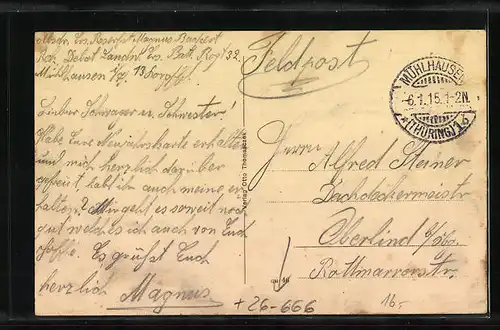 Absdr. Ers. Reserfst Magnus Bankert
Rek. Debot Landw. Ers. Batl. Regt 32.
Mühlhausen i/Th 13 Korpschft.
Lieber Schwager u. Schwester!
Habe Eure Neujahrskarte erhalten
und mich herzlich darüber
gefreut, habt ihr auch meine er-
halten? Mir geht es soweit noch
gut welches ich auch von Euch
hoffe. Es grüßt Euch
herzlich Magnus
Verlag Otto
Feldpost
MÜHLHAUSEN
-6.1.15.1-2N.
*(THÜRING)1b
Herrn
Alfred Steiner
Dachdeckermeistr
Oberlind S/Mg.
Rottmarrerstr.
+26-666
16.-